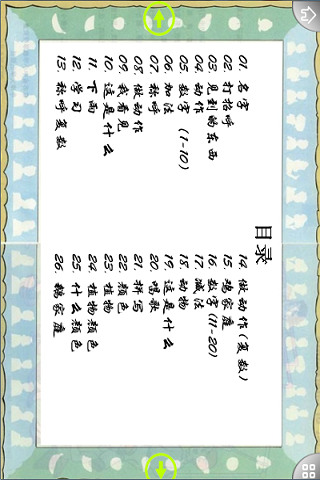 目录
01. 名字
02. 打招呼
03. 见到的东西
04. 动作
05. 数字 (1-10)
06. 加法
07. 称呼
08. 做动作
09. 我看见
10. 这是什么
11. 下雨
12. 学习
13. 称呼复数
14. 做动作(复数)
15. 鸡家庭
16. 数字(11-20)
17. 减法
18. 动物
19. 这是什么
20. 唱歌
21. 拼写
22. 颜色
23. 植物
24. 植物颜色
25. 什么颜色
26. 鹅家庭